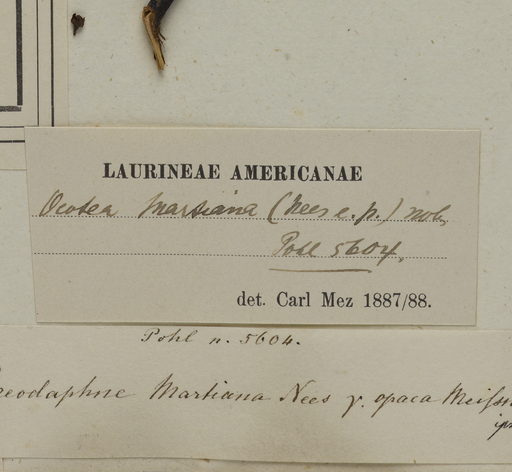 LAURINEAE AMERICANAE
Ocotea Martiana (Nees e. p.) nob.
Pohl 5604.
det. Carl Mez 1887/88.
Pohl n. 5604.
eodaphne Martiana Nees γ. opaca Meißn